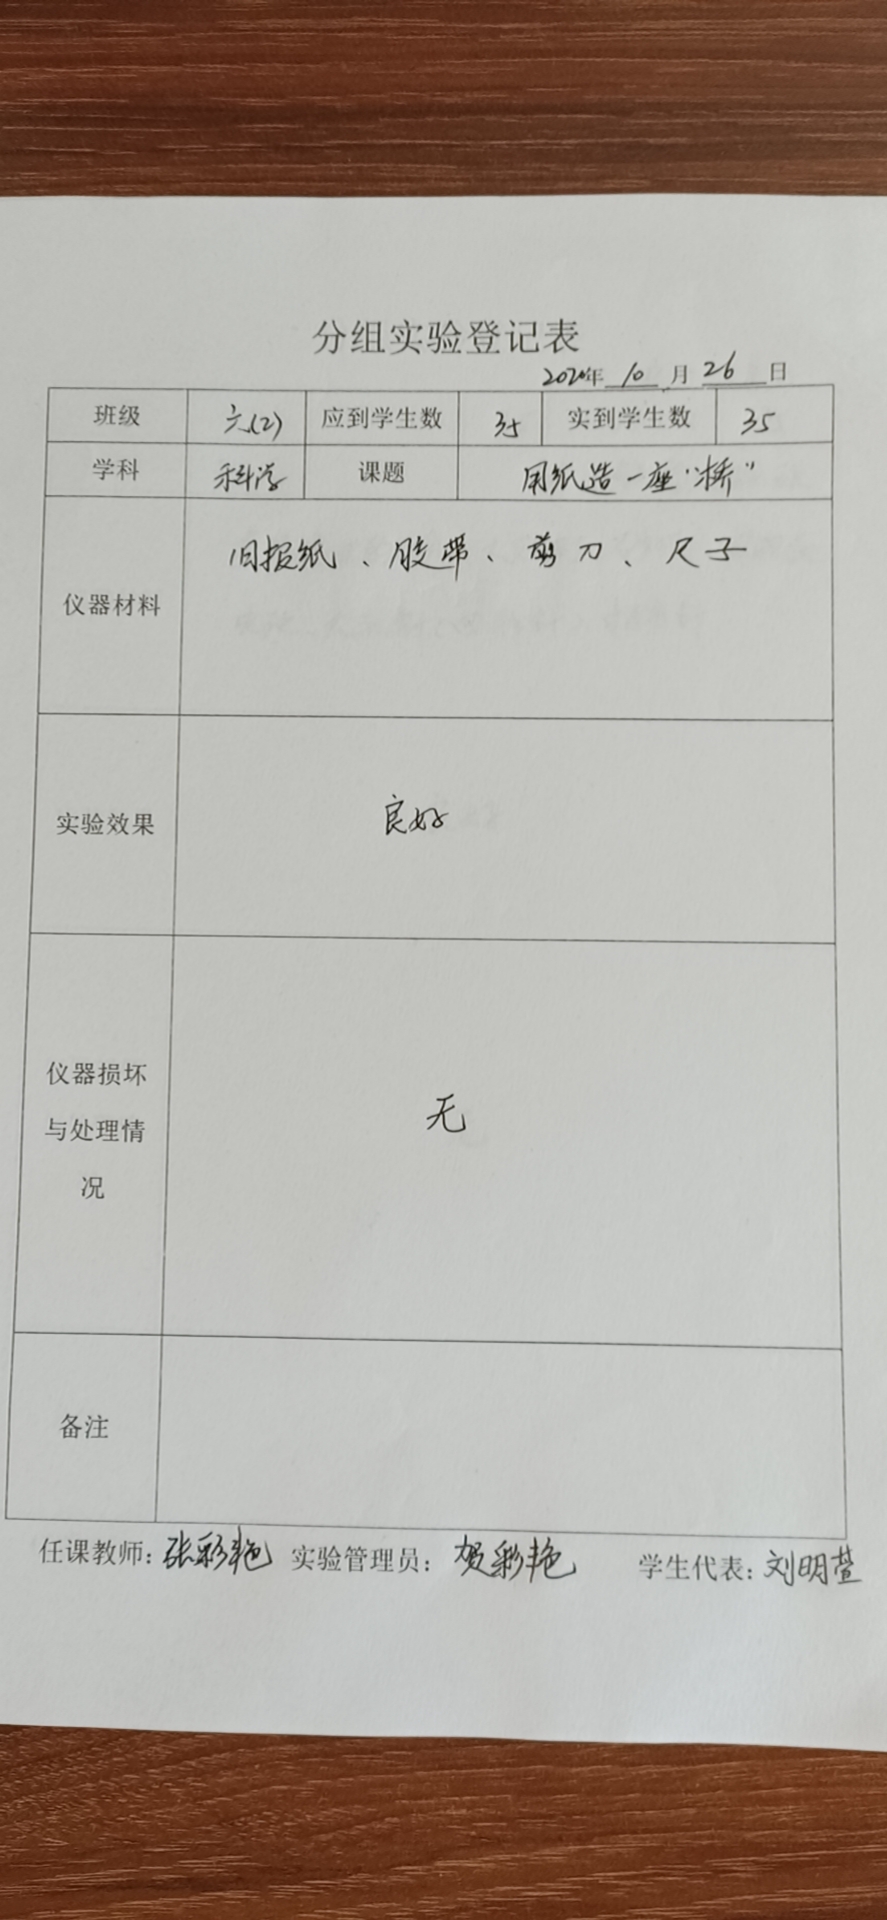 分组实验登记表
2020年 10 月 26 日
班级 六(2) 应到学生数 35 实到学生数 35
学科 科学 课题 用纸造一座“桥”
仪器材料 旧报纸、胶带、剪刀、尺子
实验效果 良好
仪器损坏
与处理情 无
况
备注
任课教师：张彩艳 实验管理员：贺彩艳 学生代表：刘明萱